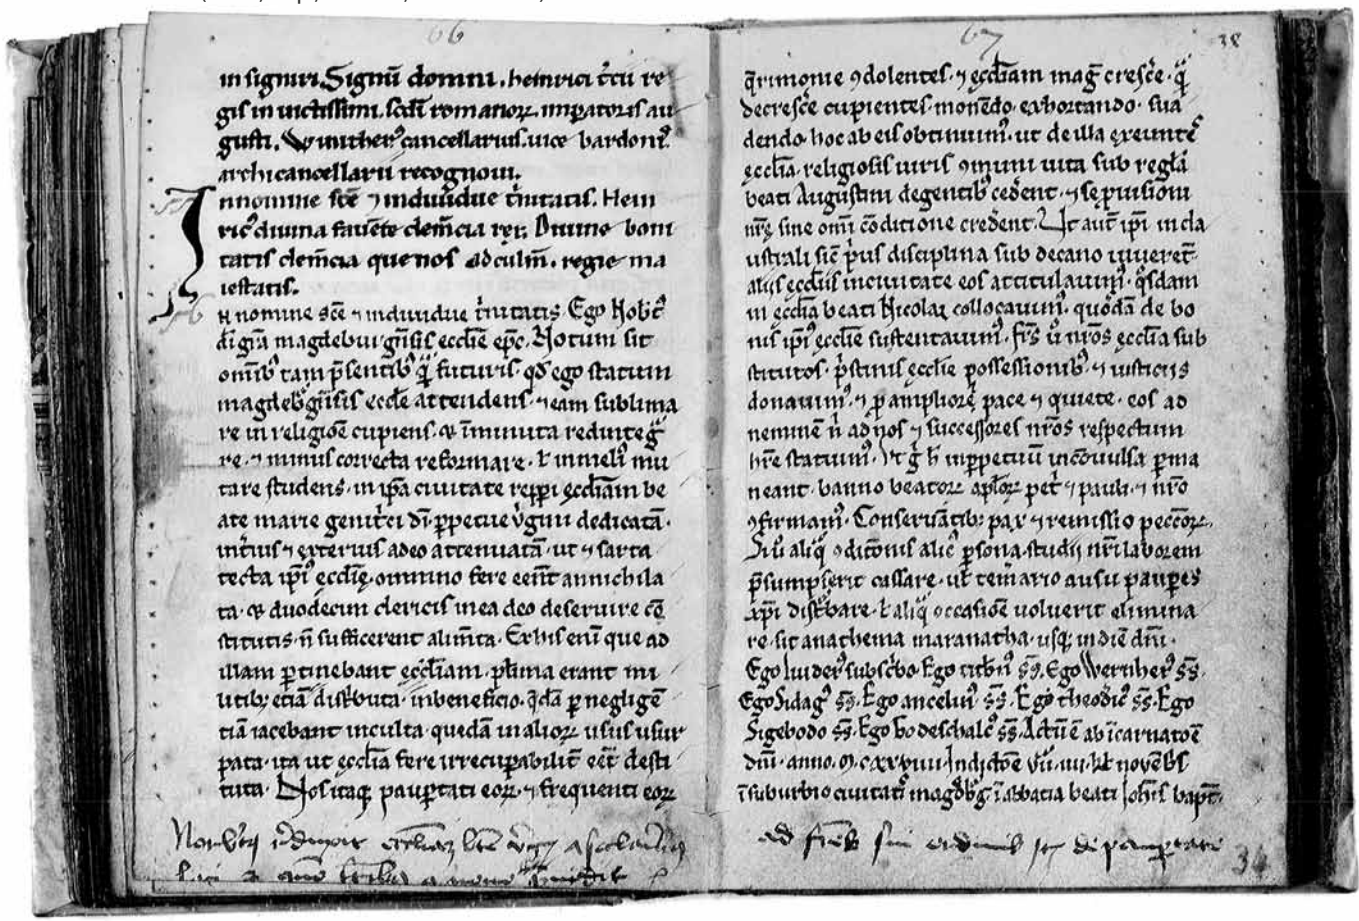 66
in signiri. Signū domni. heinrici t̄cii re
gis in uictissimi. sc̄di romanorꝝ. imꝑatoris au
gusti. Wintherꝰ cancellarius. uice bardonis.
archicancellarii recognoui.
Innomine sc̄e ⁊ indiuidue t̓nitatis. Hein
ricꝰ diuina fauēte clem̄cia rex. Diuine boni
tatis clem̄cia que nos ad culm̄. regie ma
iestatis.
N nomine sc̄e ⁊ indiuidue t̓nitatis. Ego Nobt̓ꝰ
dī gr̄a magdeburgn̄sis eccl̄ie ep̄c. Notum sit
omībꝰ tam p̄sentibꝰ qᷓ futuris. qd̄ ego statum
magdebꝰgn̄sis eccl̄e attendens. ⁊ eam sublima
re in religiōe cupiens. & īminuta redintegᷓ
re. ⁊ minus correcta reformare. ł in meliꝰ mu
tare studens. in ip̄a ciuitate rep̲pi ęccl̄iam be
ate marie genit̓ci dī. ꝑpetue v̓gini dedicatā.
int̓ius ⁊ exterius adeo attenuatā. ut ⁊ sarta
tecta ip̄iꝰ ęccl̄ię. omnino fere eēnt annichila
ta. & duodecim clericis in ea deo deseruire cō
stitutis. n̄ sufficerent alim̄ta. Ex his enī que ad
illam ꝑtinebant ęccl̄iam. pl̄ima erant mi
litibꝫ etiā distͥbuta. in beneficio. q̄dā ꝑ neglige̅
tiā iacebant inculta. quedā in aliorꝝ usus usur
pata. ita ut ęccl̄ia fere irrecuꝑabilit̄ eēt desti
tuta. Nos itaqꝫ pauꝑtati eorꝝ. ⁊ frequenti eorꝝ
67
38
q̄rimonie ꝯdolentes. ⁊ ęccl̄iam maḡ cresc̄e. qᷓ
decresc̄e cupientes. monēdo. exhortando. sua
dendo. hoc ab eis obtinuimꝰ. ut de illa exeuntēs
ęccl̄ia. religiosis uiris ꝯmuni uita sub reglā
beati Augustini degentibꝰ ced̄ent. ⁊ se ꝓuisioni
nr̄ę sine omī cōditione cred̄ent. Ut aut̄ ip̄i in cla
ustrali sic̄ p̓us disciplina sub decano uiuerēt.
aliis ęccl̄iis in ciuitate eos attitulauimꝰ. qͦsdam
in ęccl̄ia beati Nicolai collocauimꝰ. quōdā de bo
nis ip̄iꝰ ęccl̄ie sustentauimꝰ. fr̄s ū nr̄os ęccl̄ia sub
stitutos. p̓stinis ęccl̄ie possessionibꝰ. ⁊ iusticiis
donauimꝰ. ⁊ ꝑ ampliorē pace ⁊ quiete. eos ad
neminē n̄ ad nos ⁊ successores nr̄os respectum
hr̄e statuimꝰ. Ut g̓ h̄ inꝑpetuū incōuulsa ꝑma
neant. banno beatorꝝ aplorꝝ pet̓ ⁊ pauli. ⁊ nr̄o
ꝯfirmamꝰ. Conseruātibꝫ pax ⁊ remissio peccorꝝ.
Siū aliqͣ ꝯdictōnis aliē ꝑsona. studii nr̄i laborem
p̄sumpserit cassare. uł tem̄ario ausu pauꝑes
xp̄i distͬbare. ł aliqͣ occasiōe uoluerit elimina
re. sit anathema maranatha. usqꝫ in diē dn̄i.
Ego luiderꝰ subsc̓bo. Ego tith̄nꝰ s̄s̄. Ego Wernherꝰ s̄s̄.
Ego Sidagꝰ s̄s̄. Ego ancelmꝰ s̄s̄. Ego theodic̓ꝰ s̄s̄. Ego
Sigebodo s̄s̄. Ego Godeschalcꝰ s̄s̄. Actū ē ab īcarnatōe
dn̄i. anno. M̄. cxxviiii. Indictōe vii. iiii. kł. nouēbs̄.
ī suburbio ciuitatꝭ magd̄bg̓. ī abbatia beati Joh̄is bapt̄.
34